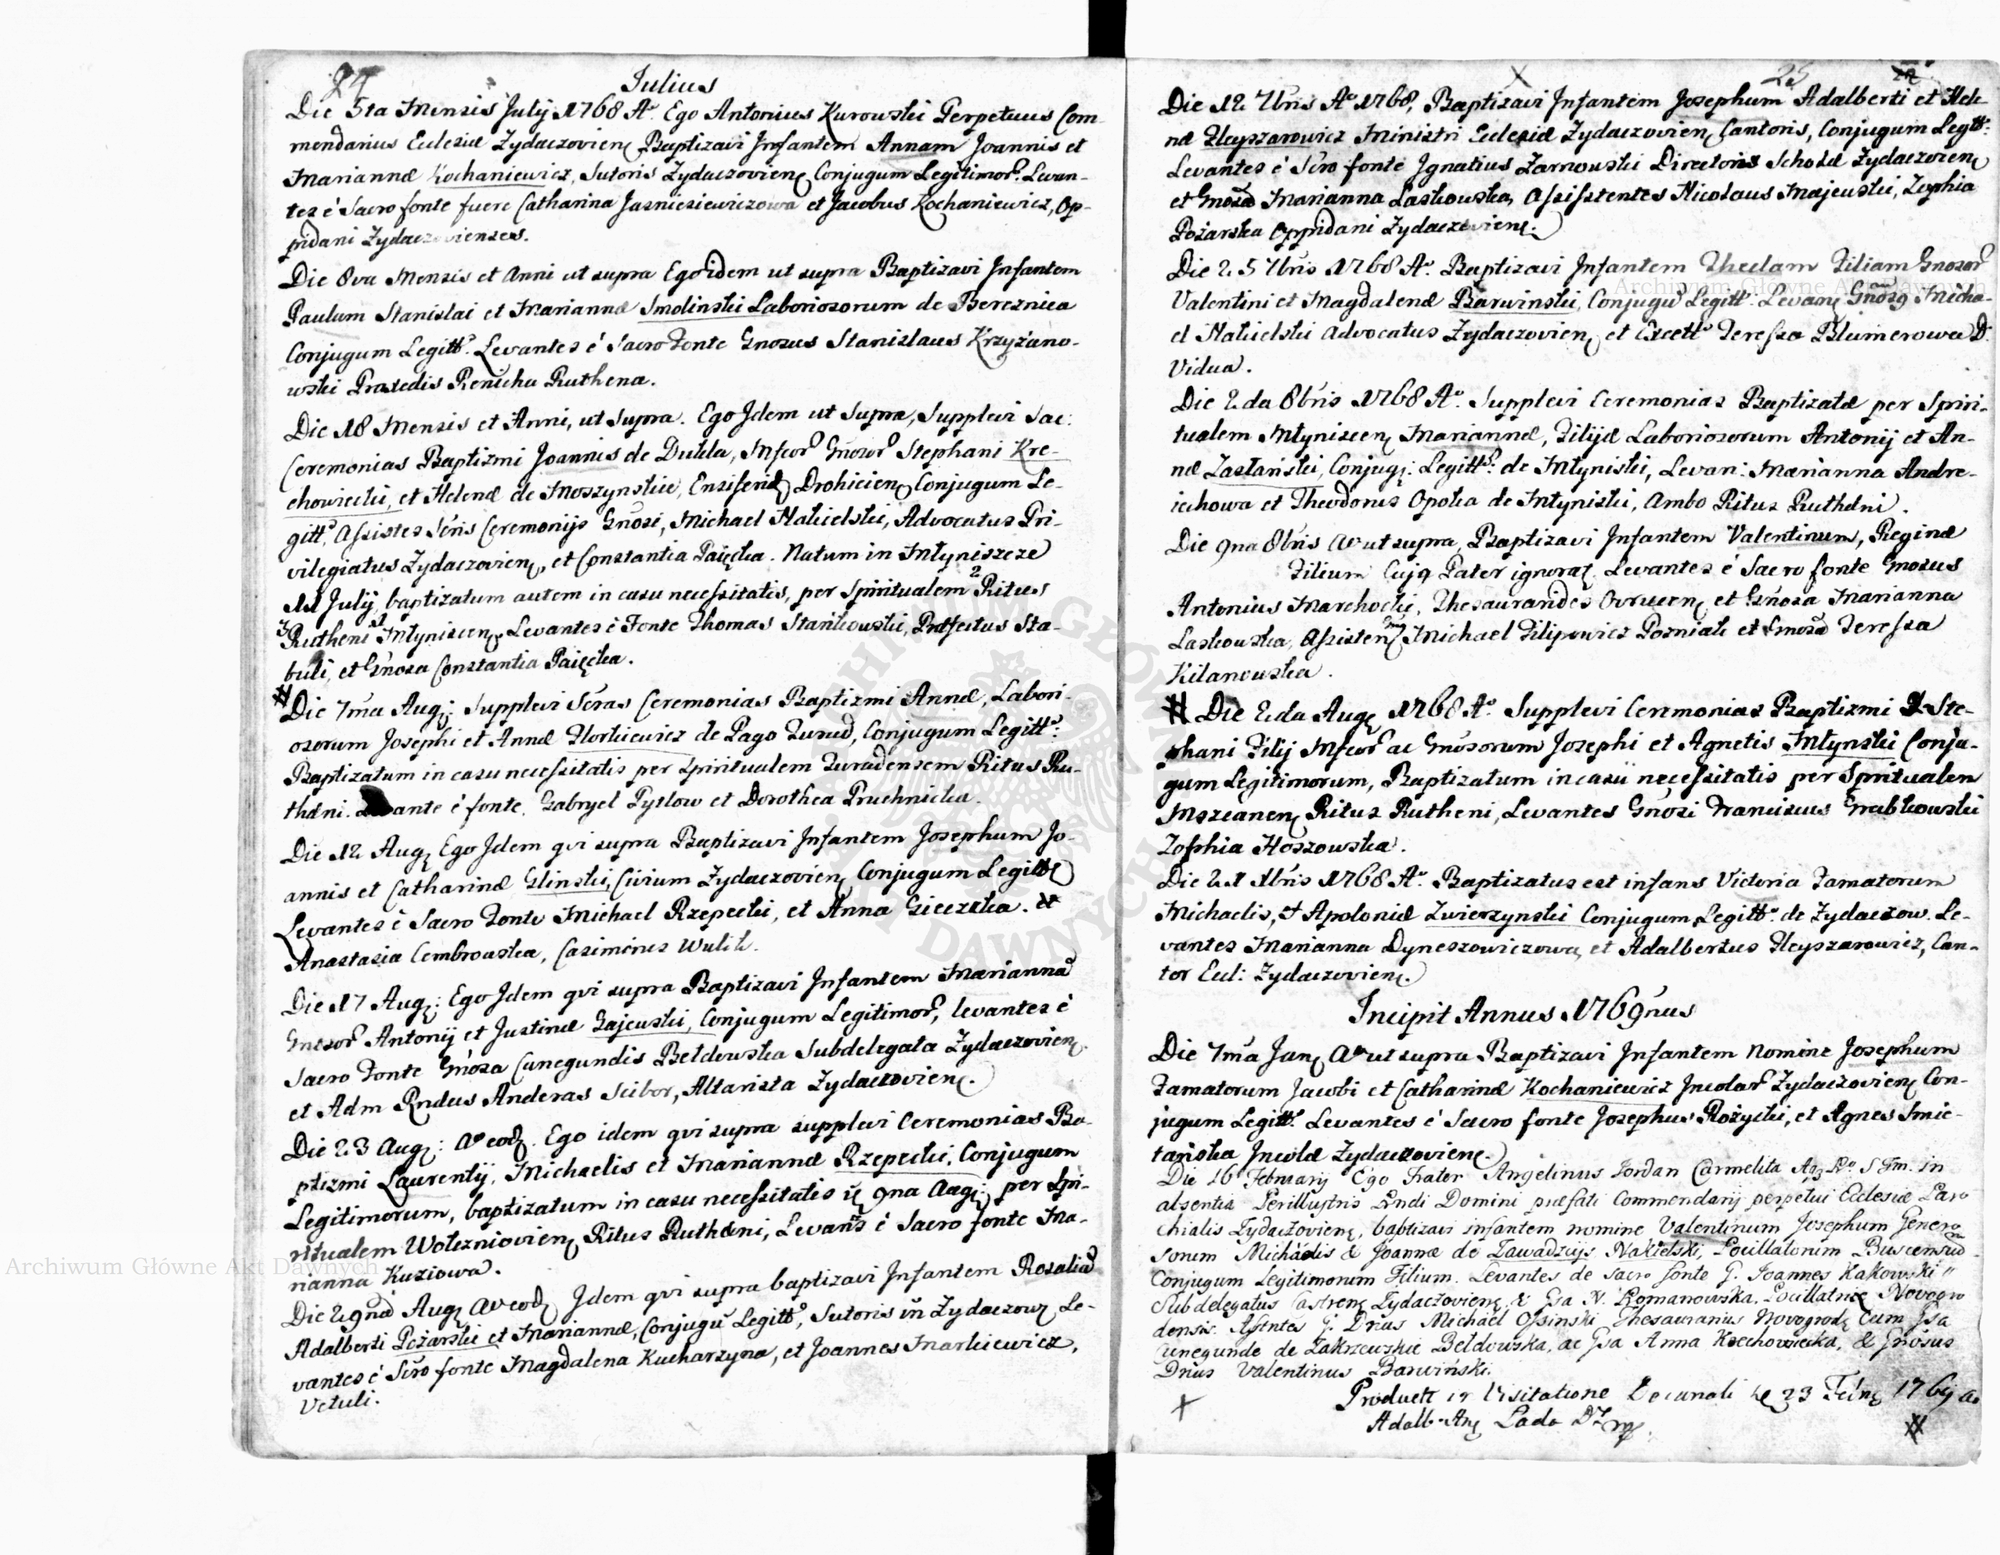 24
Julius
Die 5ta Mensis July 1768 Ao. Ego Antonius Kurowski Perpetuus Com-
mendarius Eclesiæ Zydaczovien Baptizavi Infantem Annam Joannis et
Mariannæ Kochaniewicz, Sutoris Zydaczovien Conjugum Legitimor. Levan-
tes è Sacro fonte fuere Catharina Jasniesiewiczowa et Jacobus Kochaniewicz, Op-
pidani Zydaczovienses.
Die 8va Mensis et Anni ut supra Ego idem ut supra Baptizavi Infantem
Paulum Stanislai et Mariannæ Smolinski Laboriosorum de Bereznica
Conjugum Legitt. Levantes è Sacro Fonte Gnosus Stanislaus Krzyżano-
wski Praxedis Renicha Ruthena.
Die 18 Mensis et Anni, ut Supra. Ego Idem ut Supra, Supplevi Sac:
Ceremonias Baptizmi Joannis de Dukla, Mfcor Gnosor Stephani Kre-
chowiecki, et Helenæ de Moszynskie, Ensiferid Drohicien Conjugum Le-
gitt. Assistes Scris Ceremonijs Gnosi, Michael Nakielski, Advocatus Pri-
vilegiatus Zydaczovien, et Constantia Paięcka. Natum in Młyniszcze
11 July, baptizatum autem in casu necessitatis, per Spiritualem 2 Ritus
3 Rutheni 1 Młyniscen, Levantes è Fonte Thomas Stańkowski, Præfectus Sta-
buli, et Gnosa Constantia Paięcka.
# Die 7ma Aug: Supplevi Scras Ceremonias Baptizmi Annæ, Labori-
osorum Josephi et Annæ Horkiewicz de Pago Turad, Conjugum Legitt.
Baptizatum in casu necessitatis per Spiritualem Turadensem Ritus Ru-
thæni. Levante è fonte. Gabryel Pytlow et Dorothea Pruchnicka.
Die 12 Aug Ego Idem qvi supra Baptizavi Infantem Josephum Jo-
annis et Catharinæ Glinski, Civium Zydaczovien Conjugum Legitt
Levantes è Sacro Fonte Michael Rzepecki, et Anna Gieczka. #
Anastasia Cembrowska, Casimirus Wulik.
Die 17 Aug: Ego Idem qvi supra Baptizavi Infantem Mariannā
Gnosor Antonij et Justinæ Gajewski, Conjugum Legitimor, levantes è
Sacro Fonte Gnosa Cunegundis Bełdowska Subdelegata Zydaczovien.
et Adm Rndus Anderas Scibor, Altarista Zydaczovien.
Die 23 Aug: Ao eod. Ego idem qvi supra supplevi Ceremonias Ba-
ptizmi Laurentij, Michaelis et Mariannæ Rzepecki, Conjugum
Legitimorum, baptizatum in casu necessitatis 9na Aug: per Spi-
ritualem Wolczniovien Ritus Ruthæni, Levans è Sacro fonte Ma-
rianna Kuziowa.
Die 29na Aug Ao eod Idem qvi supra baptizavi Infantem Rosaliā
Adalberti Pożarski et Mariannæ, Conjugū Legitt, Sutoris in Zydaczow Le-
vantes è Scro fonte Magdalena Kucharzyna, et Joannes Markiewicz,
Vetuli.
25
Die 12 7bris Ao 1768, Baptizavi Infantem Josephum Adalberti et Hele-
næ Heyszarowicz Ministri Eclesiæ Zydaczovien Cantoris, Conjugum Legitt.
Levantes è Scro fonte Ignatius Żarnowski Directoris Scholæ Zydaczovien
et Gnosa Marianna Laskowska, Assistentes Nicolaus Majewski, Zophia
Pożarska Oppidani Zydaczovien.
Die 25 7bris 1768 Ao. Baptizavi Infantem Theclam Filiam Gnosor
Valentini et Magdalenæ Barwinski, Conjugū Legitt. Levan Gnosq Micha-
el Nakielski Advocatus Zydaczovien, et Excell. Teressa Blumerowa D.
Vidua.
Die 2da 8bris 1768 Ao. Supplevi Ceremonias Baptizatæ per Spiri-
tualem Młyniscen, Mariannæ, Filijæ Laboriosorum Antonij et An-
næ Zastański, Conjug: Legitt. de Młyniski, Levan: Marianna Andre-
ichowa et Theodorus Opoka de Młyniski, Ambo Ritus Ruthæni.
Die 9na 8bris Ao ut supra, Baptizavi Infantem Valentinum, Reginæ
Filium Cujq Pater ignorat. Levantes è Sacro fonte Gnosus
Antonius Marchocki, Thesaurarides Ovrucen, et Gnosa Marianna
Laskowska, Assisten Michael Filipowicz Pozniak et Gnosa Teressa
Kilanowska.
# Die 2da Aug 1768 Ao. Supplevi Ceremonias Baptizmi Ste-
phani Filij Mfcor ac Gnosorum Josephi et Agnetis Młynski Conju-
gum Legitimorum, Baptizatum in casu necessitatis per Spiritualem
Mszcianen Ritus Rutheni, Levantes Gnosi Franciscus Grabkowski
Zophia Hoszowska.
Die 21 Xbris 1768 Ao. Baptizatus est infans Victoria Famatorum
Michaelis, et Apoloniæ Zwierzynski Conjugum Legitt. de Zydaczow. Le-
vantes Marianna Dyneszowiczowa, et Adalbertus Heyszarowicz, Can-
tor Ecl: Zydaczovien.
Incipit Annus 1769nus
Die 7ma Jan Ao ut supra Baptizavi Infantem Nomine Josephum
Famatorum Jacobi et Catharinæ Kochaniewicz Incolar Zydaczovien Con-
jugum Legitt. Levantes è Sacro fonte Josephus Rożycki, et Agnes Smie-
tańska Incolæ Zydaczovien.
Die 16 Februarij Ego Frater Angelinus Jordan Carmelita in
absentia Perillustris Rndi Domini præfati Commendarij perpetui Ecclesiæ Paro
chialis Zydaczovien, baptizavi infantem nomine Valentinum Josephum Genero
sorum Michaelis & Joannæ de Zawadzcijs Nakielski, Pocillatorum Buscensiū
Conjugum Legitimorum Filium. Levantes de Sacro fonte G. Joannes Kakowski
Subdelegatus Castren Zydaczovien, & Gsa N. Romanowska, Pocillatrix Novogro
densis. Astntes G. Dnus Michael Ossinski Thesaurarius Novogrod, Cum Gsa
Cunegunde de Zakrzewskie Bełdowska, ac Gsa Anna Krechowiecka, & Gnosus
Dnus Valentinus Barwiński.
Product in Visitatione Decanali die 23 Febr 1769 Ao
Adalb. Lada
Archiwum Główne Akt Dawnych
Archiwum Główne Akt Dawnych
ARCHIWUM GŁÓWNE AKT DAWNYCH